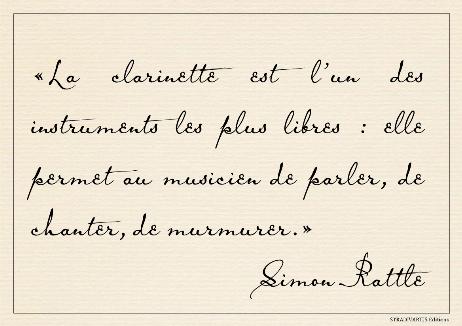 «La clarinette est l'un des
instruments les plus libres : elle
permet au musicien de parler, de
chanter, de murmurer.»
Simon Rattle
STRADIVARIUS Editions